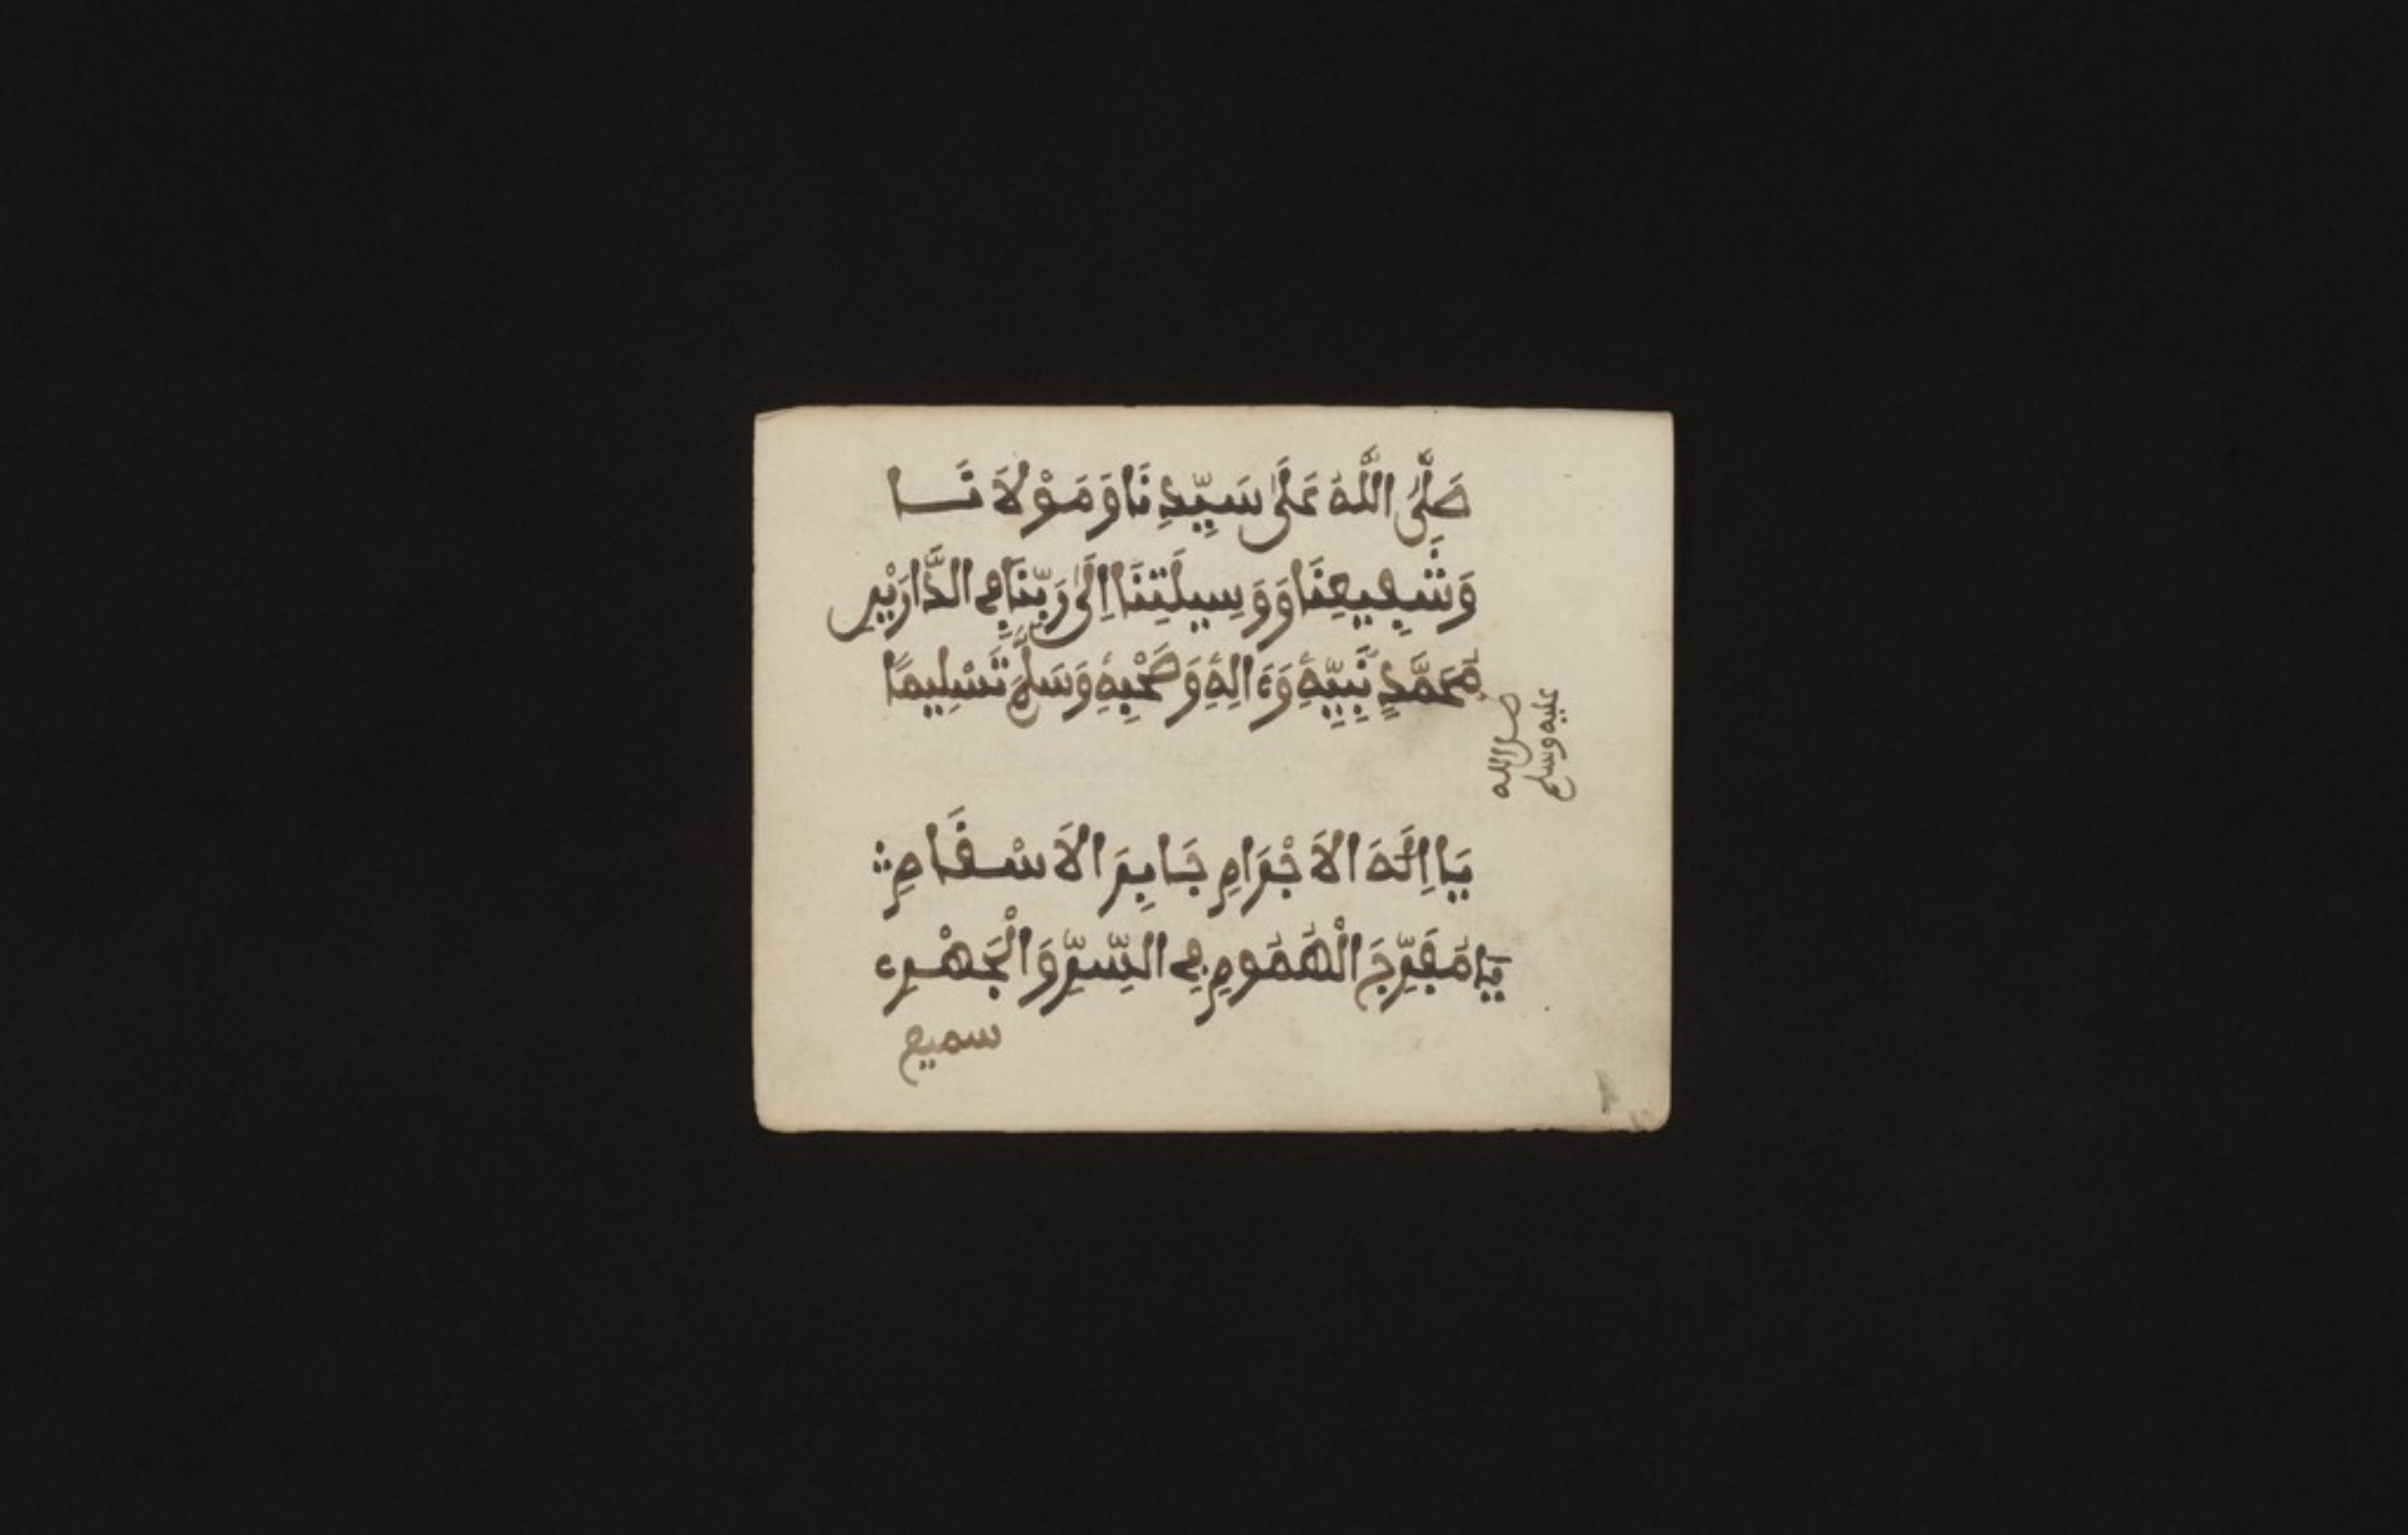 صَلَّى اللَّهُ عَلَى سَيِّدِنَا وَمَوْلَانَا
وَشَفِيعِنَا وَوَسِيلَتِنَا إِلَى رَبِّنَا فِي الدَّارَيْنِ
مُحَمَّدٍ نَبِيِّهِ وَءَالِهِ وَصَحْبِهِ وَسَلَّمَ تَسْلِيمًا
صلى الله
عليه وسلم
يَا إِلَهَ الَاجْرَامِ جَابِرَ الَاسْقَامِ
يَا مُفَرِّجَ الْهُمُومِ فِي السِّرِّ وَالْجَهْرِ
سميع